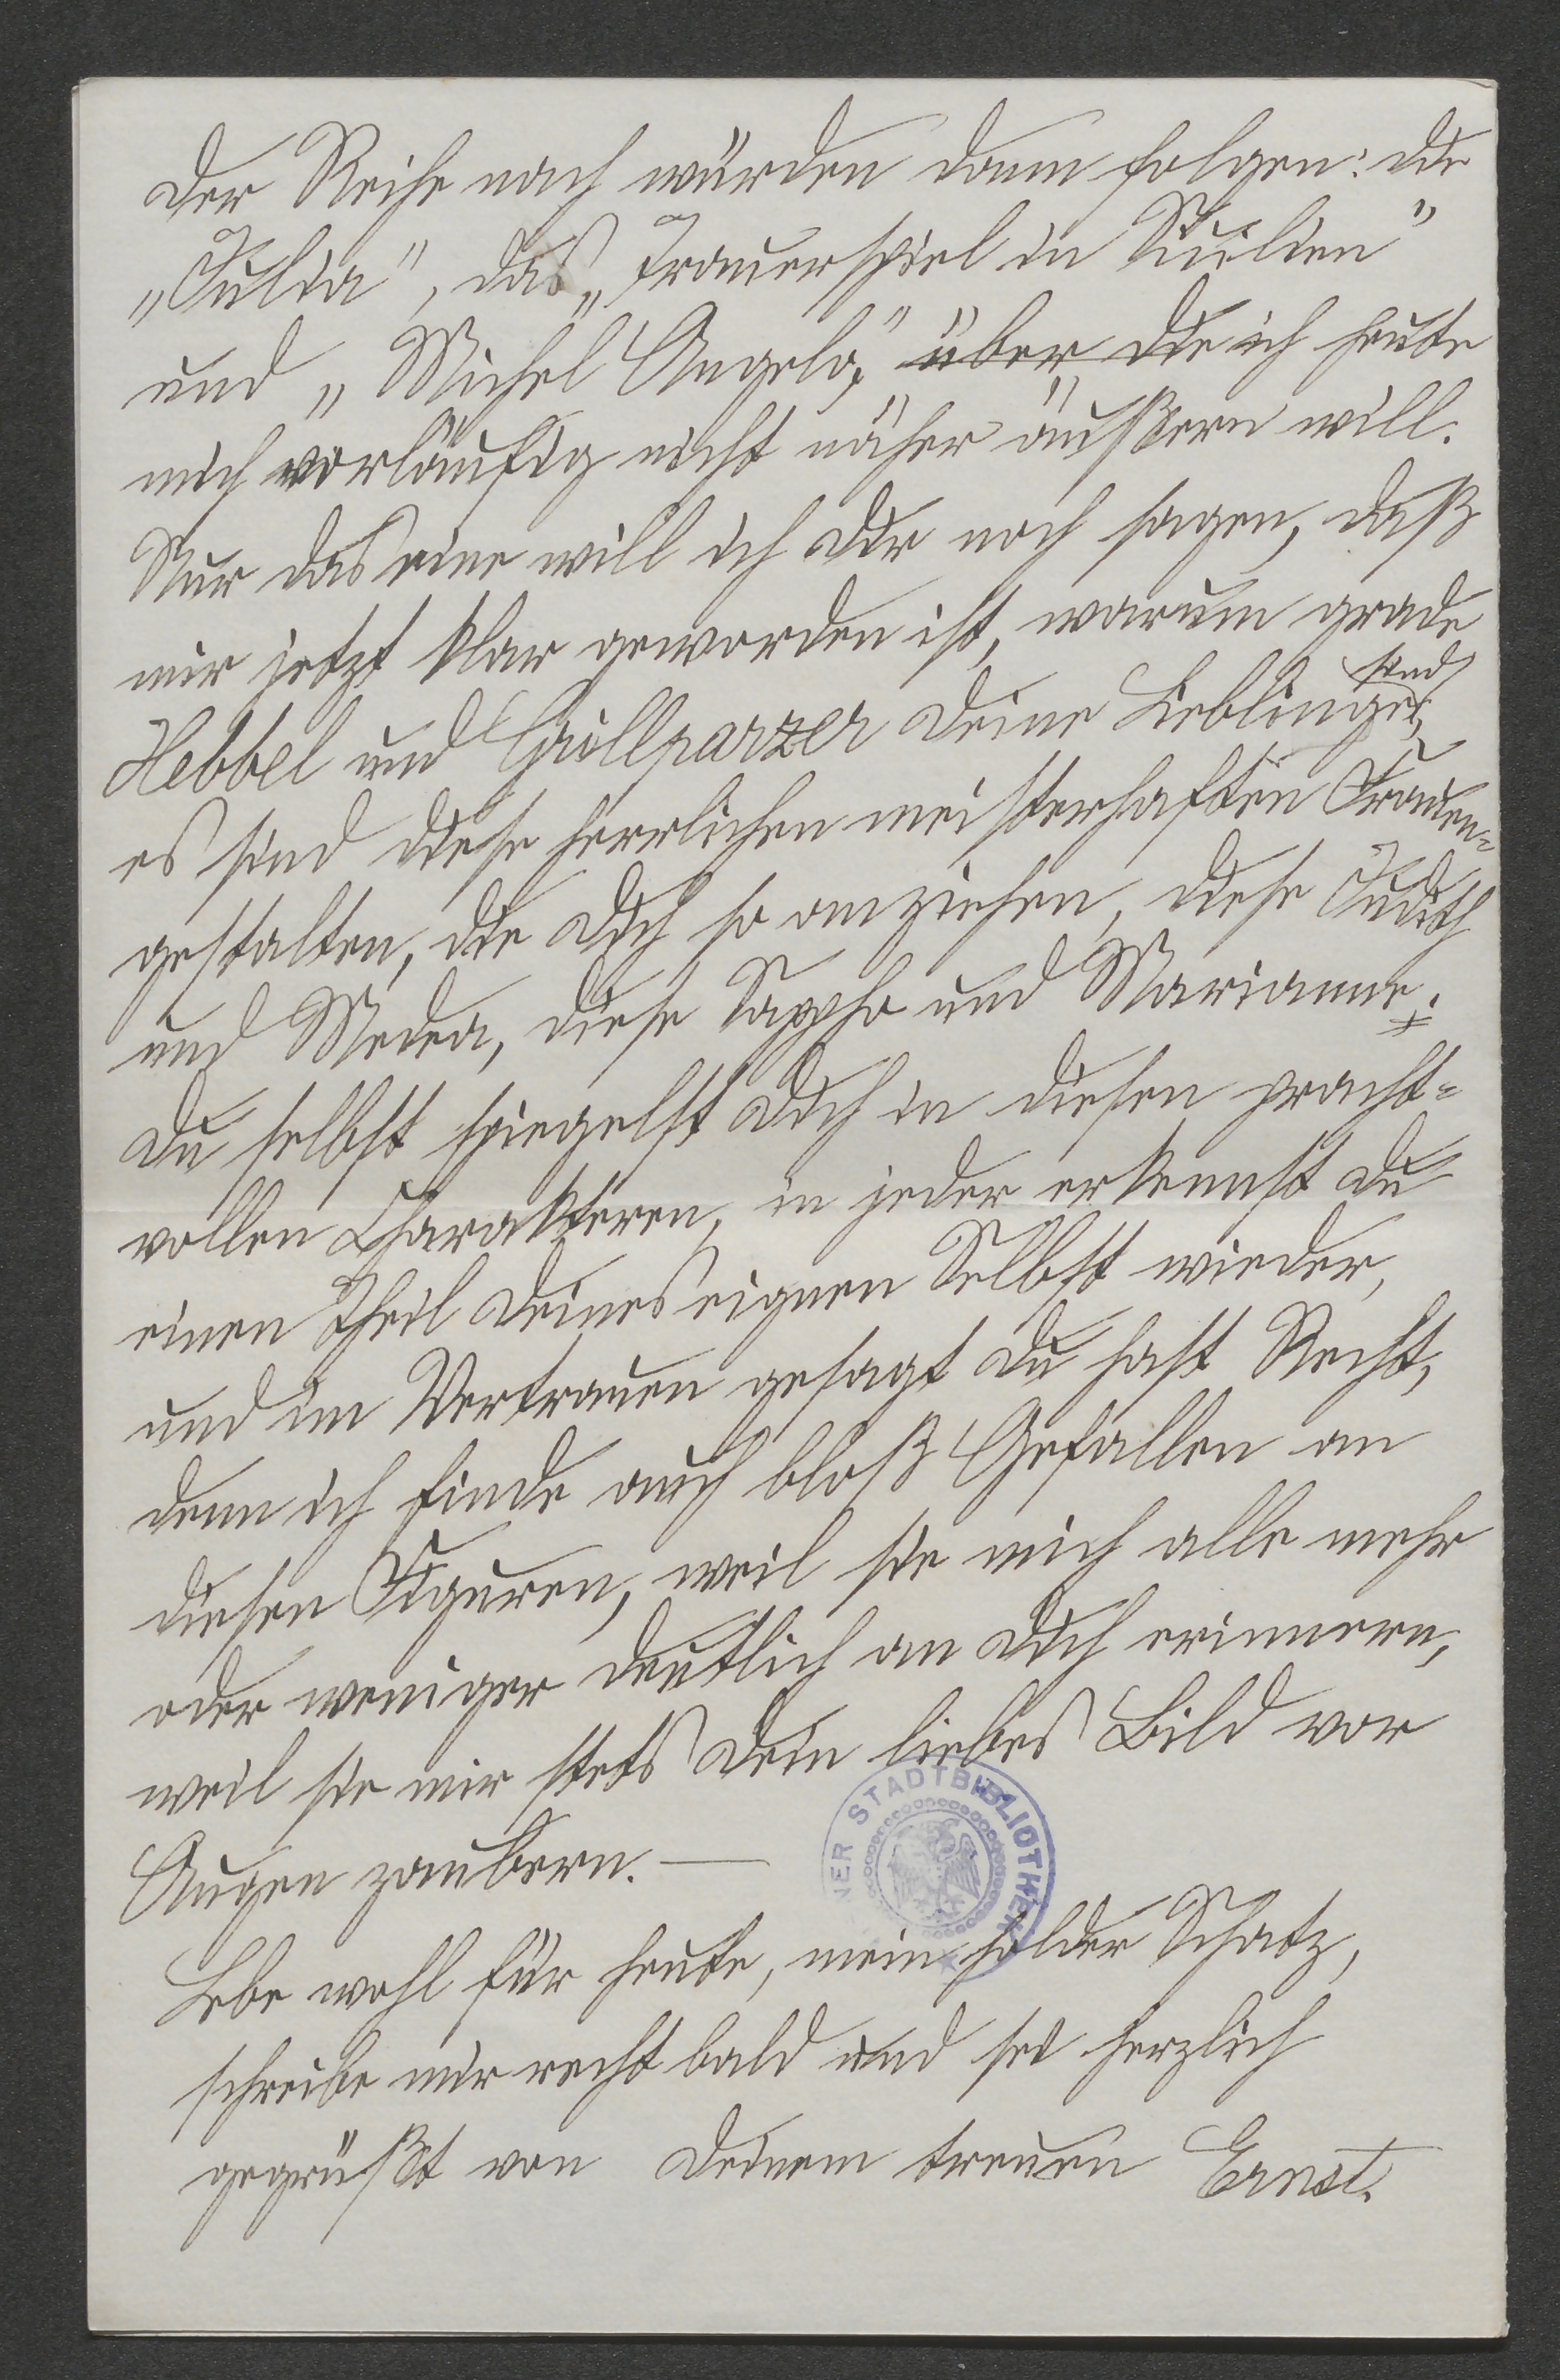 der Reihe nach würden dann folgen: die
„Julia", das „Trauerspiel in Sicilien"
und „Michel Angelo," über die ich heute
mich vorläufig nicht näher äußern will.
Nur das eine will ich dir noch sagen, daß
mir jetzt klar geworden ist, warum grade
sind
Hebbel und Grillparzer deine Lieblinge,
es sind diese herrlichen meisterhaften Frauen-
gestalten, die dich so anziehen, diese Judith
und Medea, diese Sappho und Marianne;
du selbst spiegelst dich in diesen pracht-
vollen Charakteren, in jeder erkennst du
einen Theil deines eignen Selbst wieder,
und im Vertrauen gesagt du hast Recht,
denn ich finde auch bloß Gefallen an
diesen Figuren, weil sie mich alle mehr
oder weniger deutlich an dich erinnern,
weil sie mir stets dein liebes Bild vor
Augen zaubern. —
NER STADTBIBLIOTHEK
Lebe wohl für heute, mein holder Schatz,
schreibe mir recht bald und sei herzlich
gegrüßt von deinem treuen Ernst.